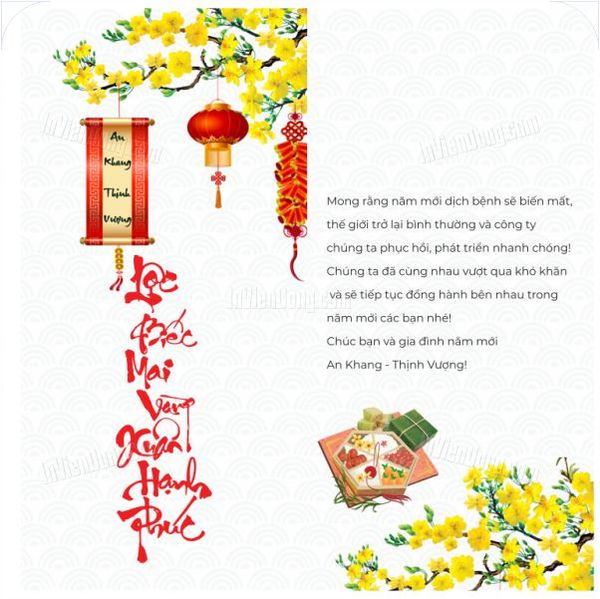 An
Khang
Thịnh
Vượng
Lộc
Biếc
Mai
Vàng
Xuân
Hạnh
Phúc
Mong rằng năm mới dịch bệnh sẽ biến mất,
thế giới trở lại bình thường và công ty
chúng ta phục hồi, phát triển nhanh chóng!
Chúng ta đã cùng nhau vượt qua khó khăn
và sẽ tiếp tục đồng hành bên nhau trong
năm mới các bạn nhé!
Chúc bạn và gia đình năm mới
An Khang - Thịnh Vượng!
InVienDong.com